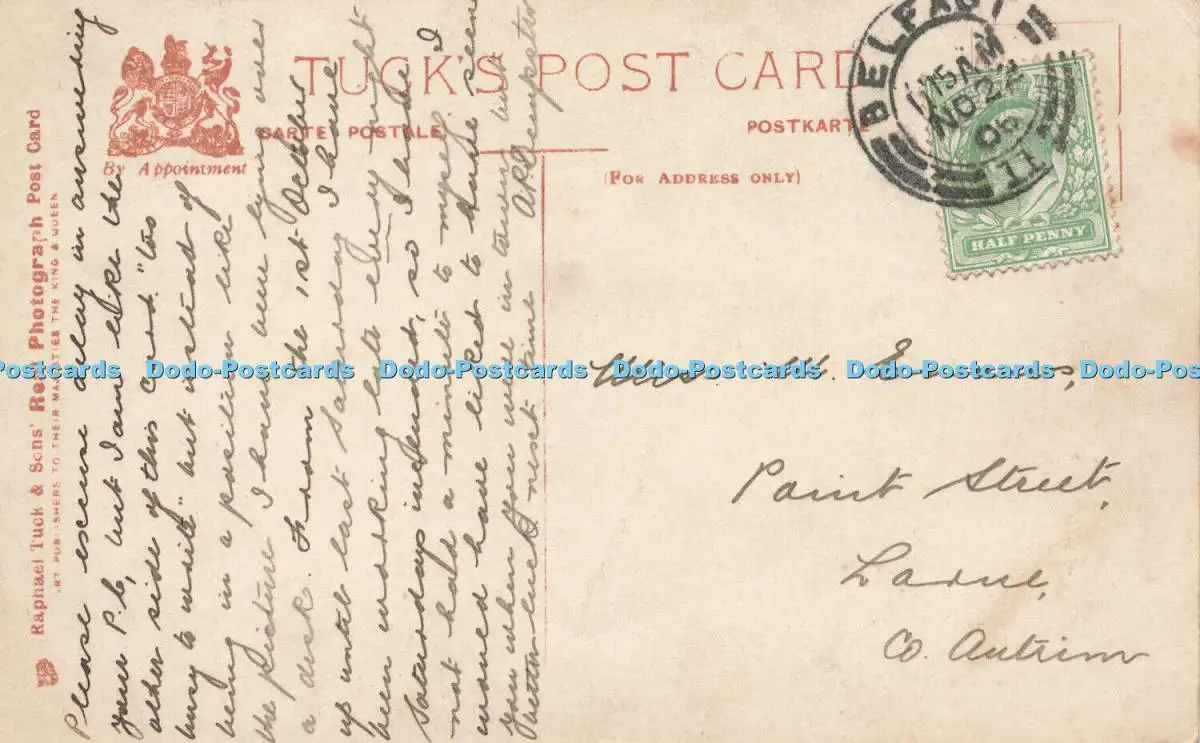 TUCK'S POST CARD
CARTE POSTALE
POSTKARTE
By Appointment
(FOR ADDRESS ONLY)
BELFAST
11 15 AM
NO 22
06
11
HALF PENNY
Raphael Tuck & Sons' Real Photograph Post Card
ART PUBLISHERS TO THEIR MAJESTIES THE KING & QUEEN
Please excuse delay in answering
your P.C, but I am like the
other side of this card. "too
busy to write" but instead of
being in a position like
the picture I have une lying over
a desk. From the 1st October
up until last Saturday I have
been working late every night
Saturdays included, so I have
not half a minute to myself. I
would have liked to have seen
you when you were in town but
better luck next time
Miss M. E
Point Street,
Larne,
Co. Antrim
Dodo-Postcards Dodo-Postcards Dodo-Postcards Dodo-Postcards Dodo-Postcards